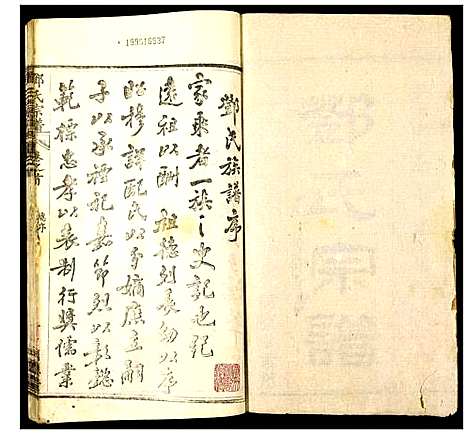 鄧氏宗譜
鄧氏族譜序
家乘者一族之史記也記
遠祖以酬祖德列長幼以序
昭穆詳配氏以分嫡庶立嗣
子以承禋祀嘉節烈以彰懿
範標忠孝以表制行獎儒業
199516937
鄧氏宗譜